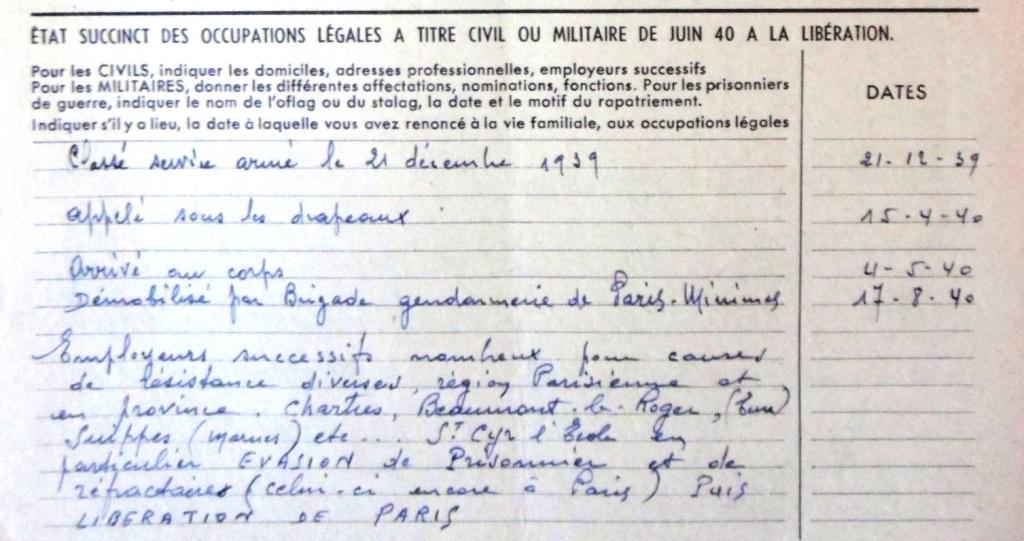 ÉTAT SUCCINCT DES OCCUPATIONS LÉGALES A TITRE CIVIL OU MILITAIRE DE JUIN 40 A LA LIBÉRATION.
Pour les CIVILS, indiquer les domiciles, adresses professionnelles, employeurs successifs
Pour les MILITAIRES, donner les différentes affectations, nominations, fonctions. Pour les prisonniers
de guerre, indiquer le nom de l'oflag ou du stalag, la date et le motif du rapatriement.
Indiquer s'il y a lieu, la date à laquelle vous avez renoncé à la vie familiale, aux occupations légales
DATES
Classé service armé le 21 décembre 1939 21-12-39
appelé sous les drapeaux 15-4-40
Arrivé au corps 4-5-40
Démobilisé par Brigade gendarmerie de Paris-Minimes 17-8-40
Employeurs successifs nombreux pour causes
de résistance diverses, région Parisienne et
en province. Chartres, Beaumont-le-Roger, (Eure)
Suippes (Marne) etc... St Cyr l'Ecole en
particulier EVASION de Prisonnier et de
réfractaires (celui-ci encore à Paris) Puis
LIBERATION DE PARIS